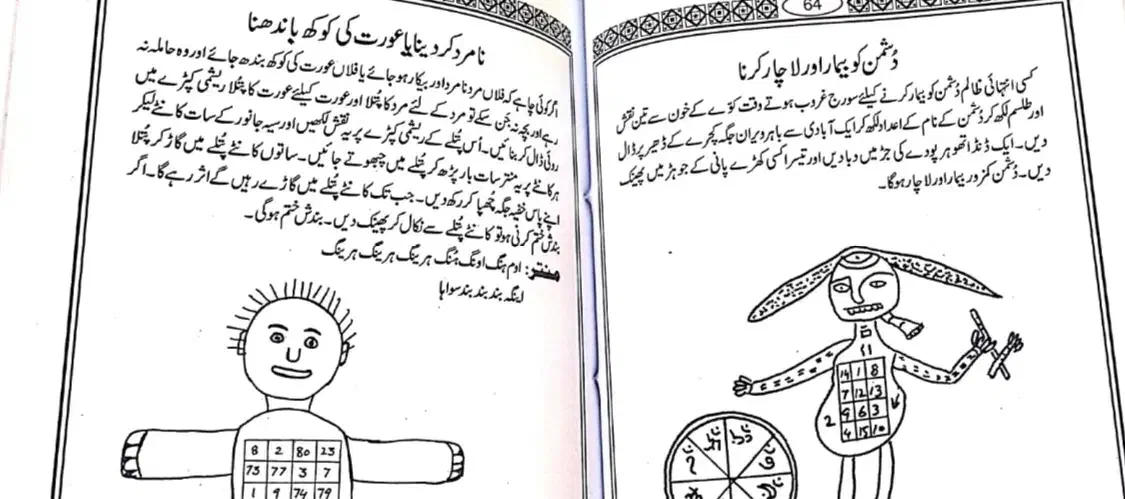 نامرد کر دینا یا عورت کی کوکھ باندھنا
اگر کوئی چاہے کہ فلاں مرد نامرد اور بیکار ہو جائے یا فلاں عورت کی کوکھ بندھ جائے اور وہ حاملہ نہ
رہے اور بچہ نہ جَن سکے تو مرد کے لئے مرد کا پُتلا اور عورت کیلئے عورت کا پُتلا ریشمی کپڑے میں
روئی ڈال کر بنائیں۔ اُس پُتلے کے ریشمی کپڑے پر یہ نقش لکھیں اور سیہ جانور کے سات کانٹے لیکر
ہر کانٹے پر یہ منتر سات بار پڑھ کر پُتلے میں چھوتے جائیں۔ ساتوں کانٹے پُتلے میں گاڑ کر پُتلا
اپنے پاس خفیہ جگہ چُھپا کر رکھ دیں۔ جب تک کانٹے پُتلے میں گاڑے رہیں گے اثر رہے گا۔ اگر
بندش ختم کرنی ہو تو کانٹے پُتلے سے نکال کر پھینک دیں۔ بندش ختم ہوگی۔
منتر: اوم ہنگ اونگ ہنگ ہرینگ ہرینگ ہرینگ
اینگہ بند بند بند سواہا
8 2 80 23
73 77 3 7
1 9 74 79
64
دُشمن کو بیمار اور لاچار کرنا
کسی انتہائی ظالم دُشمن کو بیمار کرنے کیلئے سورج غروب ہوتے وقت کوّے کے خون سے تین نقش
اور طلسم لکھ کر دُشمن کے نام کے اعداد لکھ کر ایک آبادی سے باہر ویران جگہ کچرے کے ڈھیر پر ڈال
دیں۔ ایک ڈنڈا تھوہر پودے کی جڑ میں دبا دیں اور تیسرا کسی کھڑے پانی کے جوہڑ میں پھینک
دیں۔ دُشمن کمزور بیمار اور لاچار ہوگا۔
14 1 8
7 12 13
9 6 3
4 15 10
2